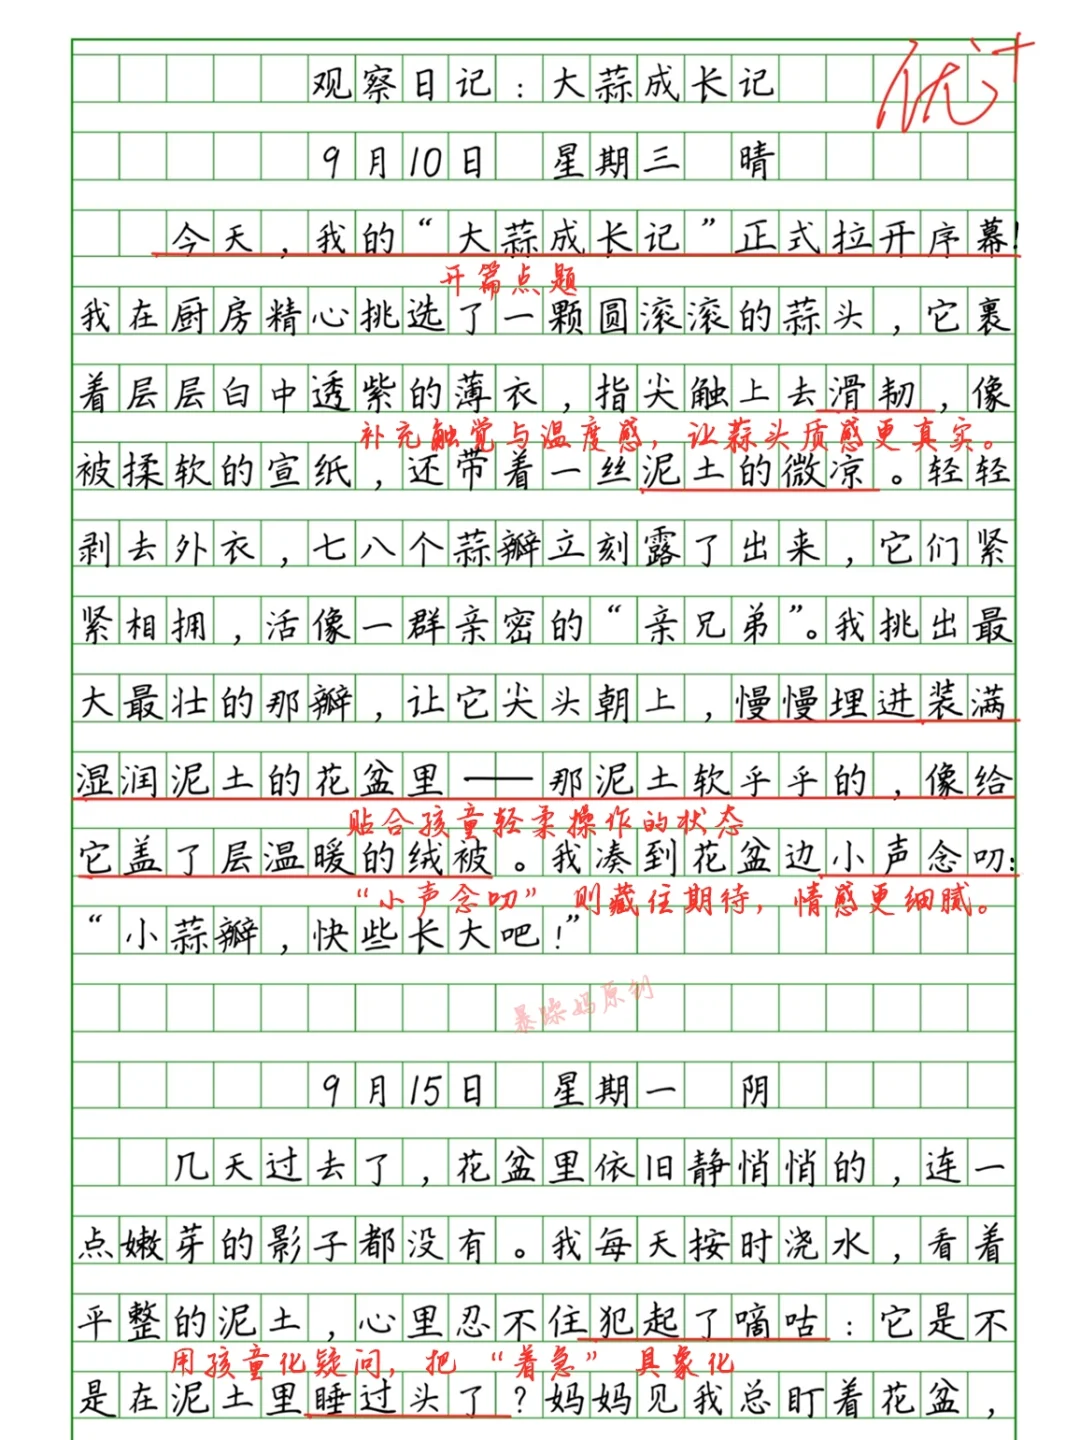 优+
观察日记：大蒜成长记
9月10日 星期三 晴
今天，我的“大蒜成长记”正式拉开序幕！
开篇点题
我在厨房精心挑选了一颗圆滚滚的蒜头，它裹
着层层白中透紫的薄衣，指尖触上去滑韧，像
补充触觉与温度感，让蒜头质感更真实。
被揉软的宣纸，还带着一丝泥土的微凉。轻轻
剥去外衣，七八个蒜瓣立刻露了出来，它们紧
紧相拥，活像一群亲密的“亲兄弟”。我挑出最
大最壮的那瓣，让它尖头朝上，慢慢埋进装满
湿润泥土的花盆里——那泥土软乎乎的，像给
贴合孩童轻柔操作的状态
它盖了层温暖的绒被。我凑到花盆边小声念叨：
“小声念叨”则藏住期待，情感更细腻。
“小蒜瓣，快些长大吧！”
暴躁妈原创
9月15日 星期一 阴
几天过去了，花盆里依旧静悄悄的，连一
点嫩芽的影子都没有。我每天按时浇水，看着
平整的泥土，心里忍不住犯起了嘀咕：它是不
用孩童化疑问，把“着急”具象化
是在泥土里睡过头了？妈妈见我总盯着花盆，